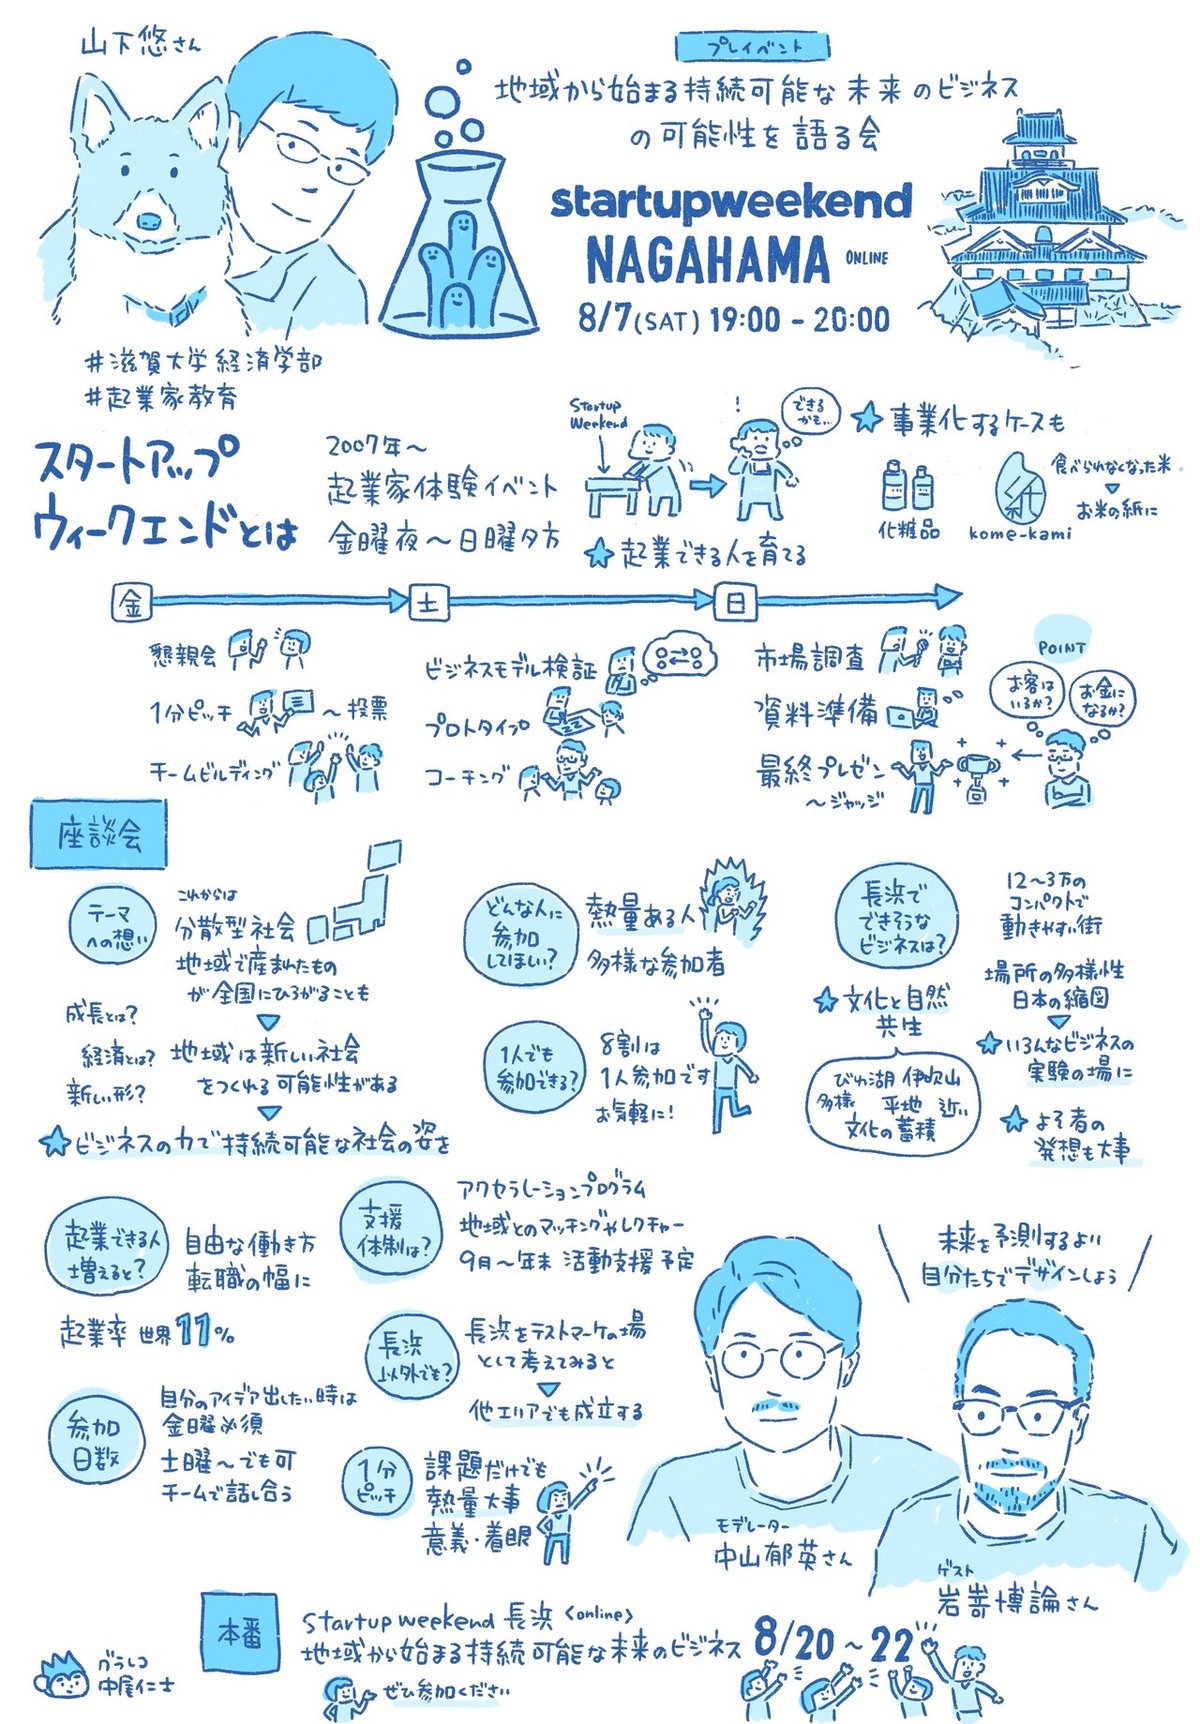 山下悠さん
プレイベント
地域から始まる持続可能な未来のビジネス
の可能性を語る会
startupweekend
NAGAHAMA ONLINE
8/7(SAT) 19:00 - 20:00
#滋賀大学経済学部
#起業家教育
スタートアップ
ウィークエンドとは
2007年〜
起業家体験イベント
金曜夜〜日曜夕方
Startup
Weekend
!
できる
かも…
★起業できる人を育てる
★事業化するケースも
化粧品
紙
kome-kami
食べられなくなった米
お米の紙に
金
土
日
懇親会
1分ピッチ
〜投票
チームビルディング
ビジネスモデル検証
プロトタイプ
コーチング
市場調査
資料準備
最終プレゼン
〜ジャッジ
POINT
お客は
いるか?
お金に
なるか?
座談会
テーマ
への想い
これからは
分散型社会
地域で産まれたもの
が全国にひろがることも
成長とは?
経済とは?
新しい形?
地域は新しい社会
をつくれる可能性がある
★ビジネスの力で持続可能な社会の姿を
どんな人に
参加
してほしい?
熱量ある人
多様な参加者
1人でも
参加できる?
8割は
1人参加です
お気軽に!
長浜で
できそうな
ビジネスは?
12〜3万の
コンパクトで
動きやすい街
場所の多様性
日本の縮図
★いろんなビジネスの
実験の場に
★よそ者の
発想も大事
★文化と自然
共生
びわ湖 伊吹山
多様 平地 近い
文化の蓄積
起業できる人
増えると?
自由な働き方
転職の幅に
起業率 世界11%
支援
体制は?
アクセラレーションプログラム
地域とのマッチングやレクチャー
9月〜年末 活動支援予定
長浜
以外でも?
長浜をテストマーケの場
として考えてみると
他エリアでも成立する
参加
日数
自分のアイデア出したい時は
金曜必須
土曜〜でも可
チームで話し合う
1分
ピッチ
課題だけでも
熱量大事
意義・着眼
未来を予測するよい
自分たちでデザインしよう
モデレーター
中山郁英さん
ゲスト
岩嵜博論さん
本番
startup weekend 長浜 〈online〉
地域から始まる持続可能な未来のビジネス 8/20〜22
ぜひ参加ください
グラレコ
中尾仁士